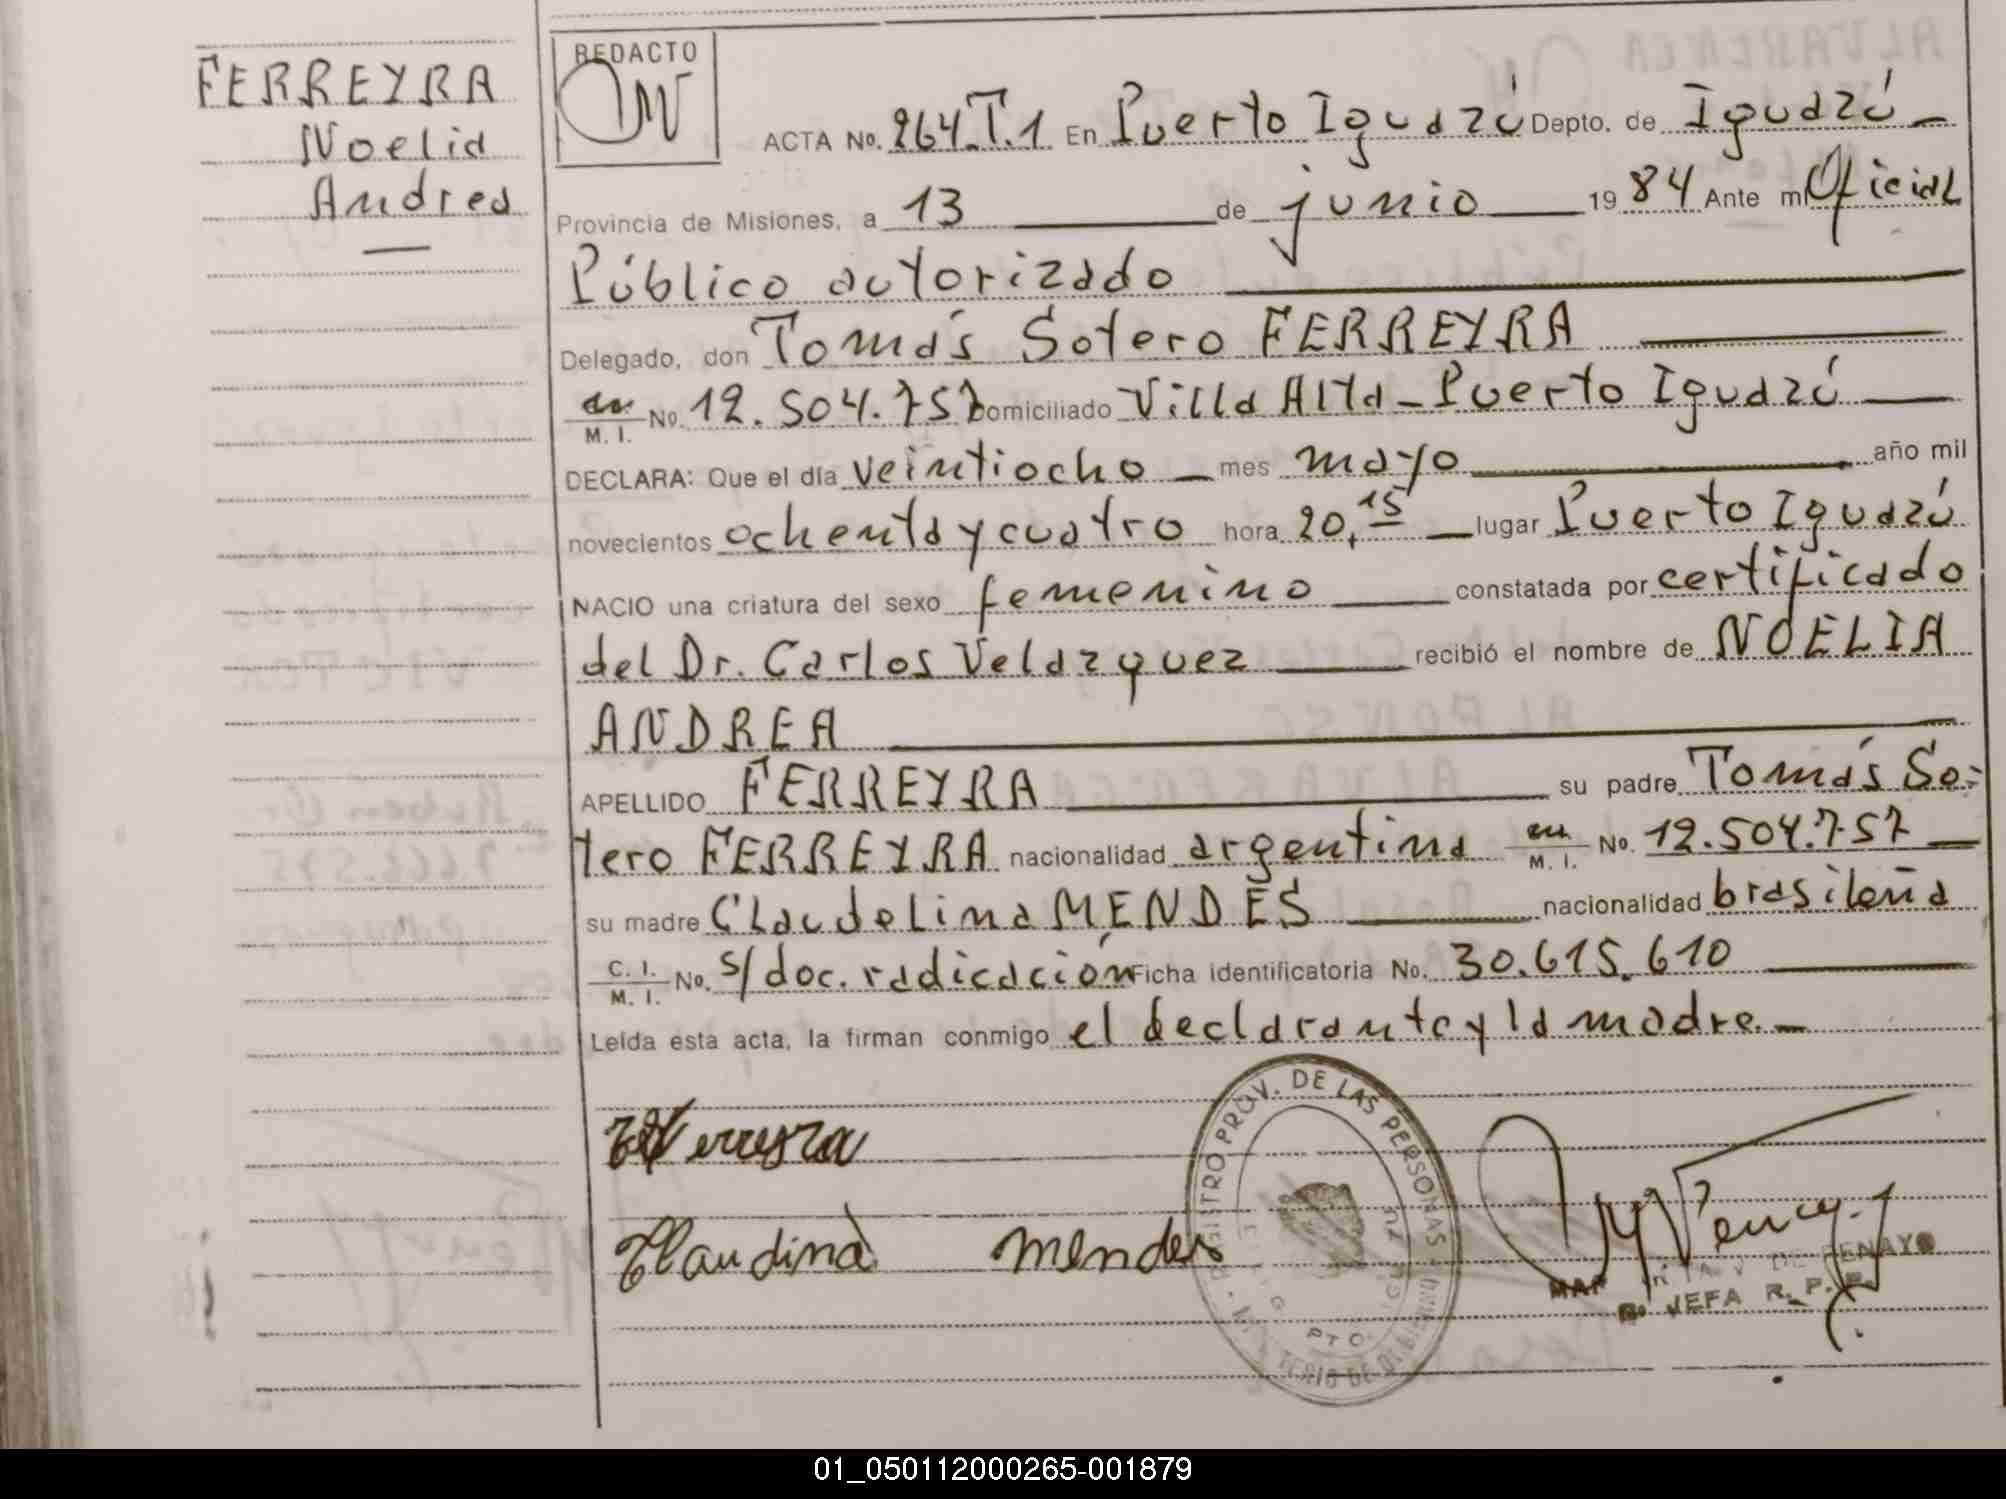 FERREYRA
Noelia
Andrea
REDACTO
ACTA No. 264.T.1 En Puerto Iguazú Depto. de Iguazú
Provincia de Misiones, a 13 de junio 1984 Ante mi Oficial
Público autorizado
Delegado, don Tomás Sotero FERREYRA
M. I. No. 12.504.757 Domiciliado Villa Alta - Puerto Iguazú
DECLARA: Que el día veintiocho mes mayo año mil
novecientos ochenta y cuatro hora 20,15 lugar Puerto Iguazú
NACIO una criatura del sexo femenino constatada por certificado
del Dr. Carlos Velazquez recibió el nombre de NOELIA
ANDREA
APELLIDO FERREYRA su padre Tomás So-
tero FERREYRA nacionalidad argentina M. I. No. 12.504.757
su madre Claudelina MENDES nacionalidad brasileña
C. I. M. I. No. s/doc. radicación Ficha identificatoria No. 30.615.610
Leída esta acta, la firman conmigo el declarante y la madre.
Ferreyra
Claudina Mendes
REGISTRO PROV. DE LAS PERSONAS
PTO.
DE PENAYO
JEFA R. P. P.
01_050112000265-001879